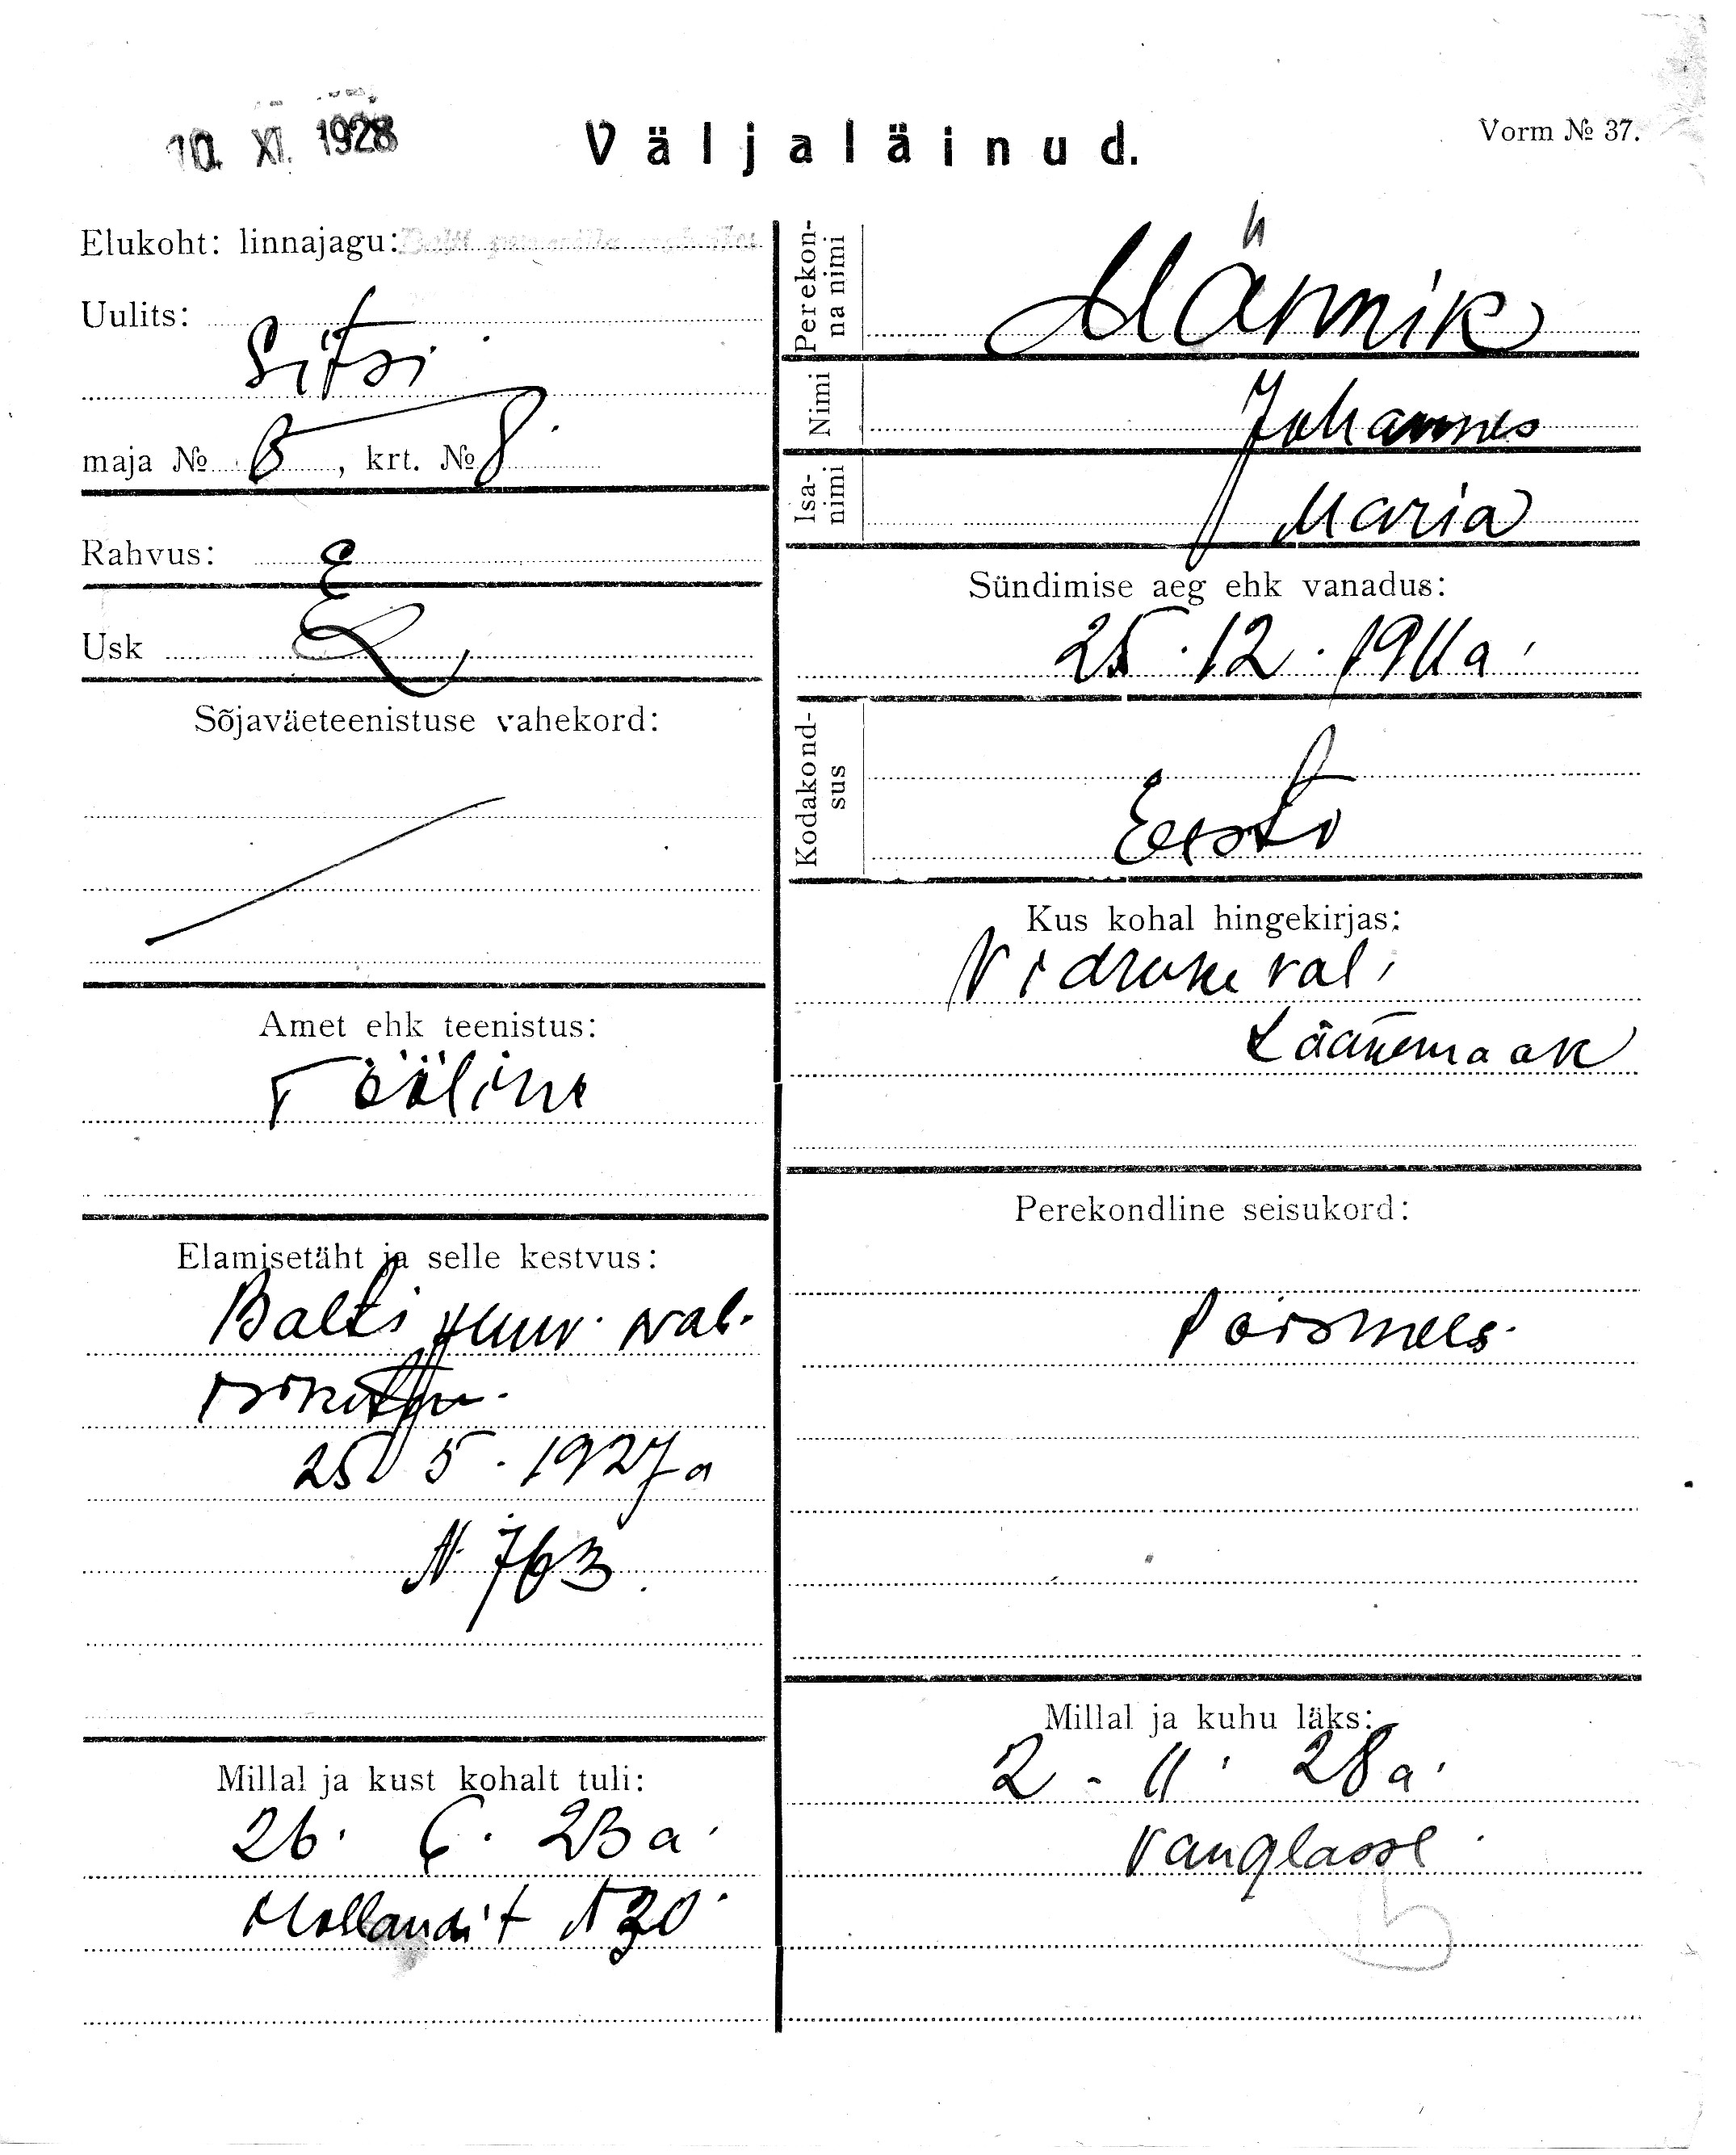 10. XI. 1928
Väljaläinud.
Vorm № 37.
Elukoht: linnajagu:
Uulits:
Sitsi
maja № 5, krt. № 8.
Rahvus: E
Usk L
Sõjaväeteenistuse vahekord:
Amet ehk teenistus:
Tööline
Elamisetäht ja selle kestvus:
Balti puuv. vab.
25 5. 1927 a
N 763.
Millal ja kust kohalt tuli:
26. 6. 23 a.
Hollandit N 30.
Perekonna nimi
Männik
Nimi
Johannes
Isanimi
Maria
Sündimise aeg ehk vanadus:
25.12.1911 a.
Kodakondsus
Eesti
Kus kohal hingekirjas:
Vidruke val.
Läänemaak
Perekondline seisukord:
Poismees.
Millal ja kuhu läks:
2 - 11. 28 a.
Vanglasse.